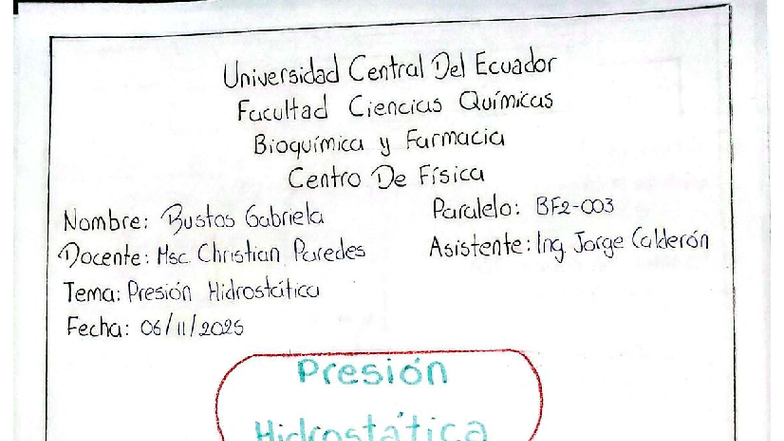 Universidad Central Del Ecuador
Facultad Ciencias Químicas
Bioquímica y Farmacia
Centro De Física
Nombre: Bustos Gabriela
Paralelo: BF2-003
Docente: Msc. Christian Paredes
Asistente: Ing Jorge Calderón
Tema: Presión Hidrostática
Fecha: 06/11/2025
Presión
Hidrostática